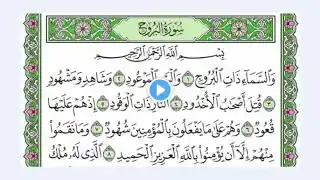 سُورَةُ الْبُرُوجِ
بِسْمِ اللَّهِ الرَّحْمَٰنِ الرَّحِيمِ
وَالسَّمَاءِ ذَاتِ الْبُرُوجِ ١ وَالْيَوْمِ الْمَوْعُودِ ٢ وَشَاهِدٍ وَمَشْهُودٍ
٣ قُتِلَ أَصْحَابُ الْأُخْدُودِ ٤ النَّارِ ذَاتِ الْوَقُودِ ٥ إِذْ هُمْ عَلَيْهَا
قُعُودٌ ٦ وَهُمْ عَلَىٰ مَا يَفْعَلُونَ بِالْمُؤْمِنِينَ شُهُودٌ ٧ وَمَا نَقَمُوا
مِنْهُمْ إِلَّا أَن يُؤْمِنُوا بِاللَّهِ الْعَزِيزِ الْحَمِيدِ ٨ الَّذِي لَهُ مُلْكُ